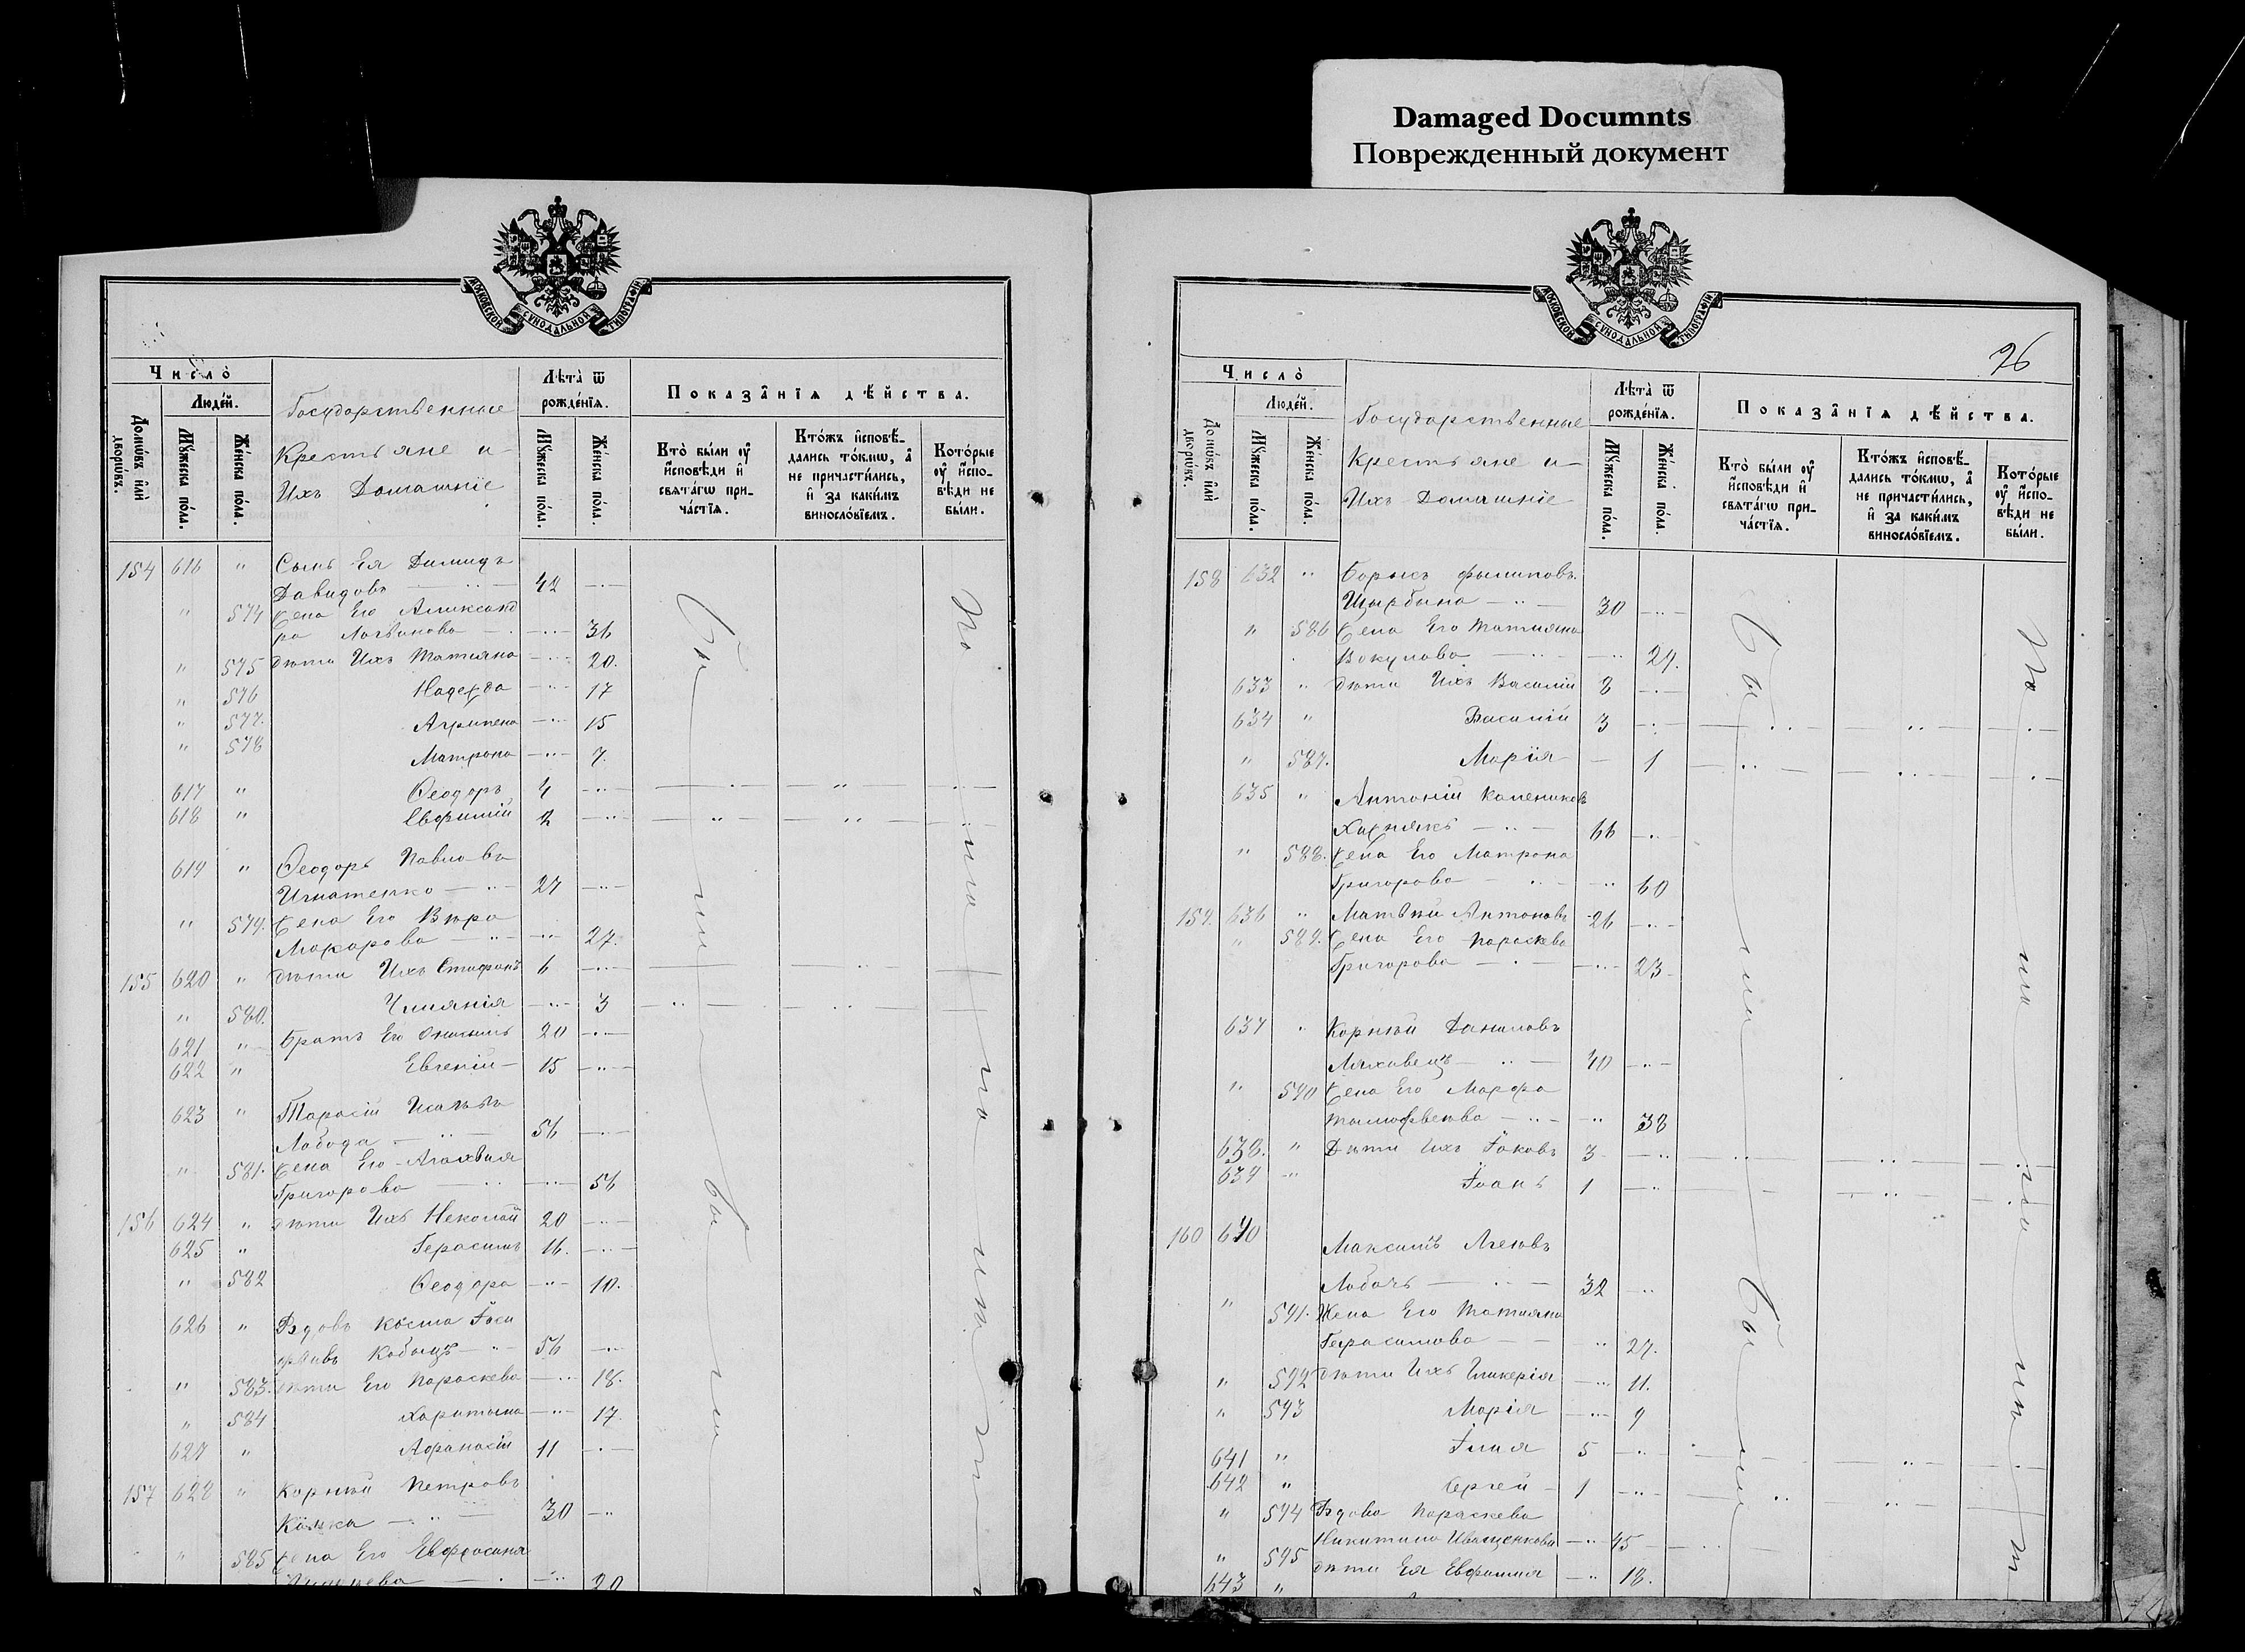 Damaged Documnts
Поврежденный документ
МОСКОВСКОЙ СУНОДАЛЬНОЙ ТИПОГРАФІИ
Число̀
Люде́й.
Домѡ́въ и҆лѝ дворѡ́въ.
Мꙋ́жеска по́ла.
Же́нска по́ла.
Государственные
Крестьяне и
Ихъ Домашніе
Лѣта̀ ѿ рожде́нїѧ.
Мꙋ́жеска по́ла.
Же́нска по́ла.
Показа̑нїѧ дѣ́йства.
Кто̀ бы́ли оу҆ и҆́сповѣди и҆ свѧта́гѡ при-ча́стїѧ.
Кто́жъ и҆сповѣ́-дались то́кмѡ, а҆ не причасти́лись, и҆ за каки́мъ виносло́вїемъ.
Кото́рые оу҆ и҆́спо-вѣди не бы́ли.
154 616 " Сынъ Ея Димидъ
Давидовъ 42
" 574 Жена Его Александ
ра Логвинова 36
" 575 дѣти Ихъ Татияна 20.
" 576 Надежда 17
" 577. Агрипена 15
" 578 Матрона 7.
617 " Ѳеодоръ 4
618 " Евфимій 2
619 " Ѳеодоръ Павловъ
Игнатенко 27
" 579. Жена Его Вѣра
Макарова 27.
155 620 " дѣти Ихъ Стифанъ 6
" 580. 3
621 " братъ Его Онисимъ 20
622 " Евгеній 15
623 " Тарасій
Лобода 56
" 581. Жена Его
Григорова 56
156 624 " дѣти Ихъ Неколай 20
625 " Герасимъ 16.
" 582 Ѳеодора 10.
626 " Вдовъ Косма Іоси
фовъ 56
" 583. дѣти Его Параскева 18.
" 584 Харитына 17.
627 " Афанасій 11
157 628 " Корнѣй Петровъ
30
" 585 Жена Его Евфросинія
20
Бы ли бы ли
26
Число̀
Люде́й.
Домѡ́въ и҆лѝ дворѡ́въ.
Мꙋ́жеска по́ла.
Же́нска по́ла.
Государственные
Крестьяне и
Ихъ Домашніе
Лѣта̀ ѿ рожде́нїѧ.
Мꙋ́жеска по́ла.
Же́нска по́ла.
Показа̑нїѧ дѣ́йства.
Кто̀ бы́ли оу҆ и҆́сповѣди и҆ свѧта́гѡ при-ча́стїѧ.
Кто́жъ и҆сповѣ́-дались то́кмѡ, а҆ не причасти́лись, и҆ за каки́мъ виносло́вїемъ.
Кото́рые оу҆ и҆́спо-вѣди не бы́ли.
МОСКОВСКОЙ СУНОДАЛЬНОЙ ТИПОГРАФІИ
158 632 " Борысъ Филиповъ
Щырбына 30
" 586 Жена Его Татияна
Вокулова 29.
633 " дѣти Ихъ Василій 8
634 " Василій 3
" 587. Марія 1
635 " Антоній Калениковъ
66
" 588. Жена Его Матрона
Григорова 60
159. 636 " Матвѣй Антоновъ 26
" 589. Жена Его Параскева
Григорова 23
637 " Корнѣй Даниловъ
Ляховецъ 40
" 590 Жена Его Марфа
Тымофѣева 38
638. " Дѣти Ихъ Іаковъ 3
639 " Іоанъ 1
160 640 Максимъ
32
" 591. Жена Его Татияна
Герасимова 27.
" 592 дѣти Ихъ Гликерія 11.
" 593 Марія 9
641 " Илія 5
642 " Сергей 1
" 594 Вдова Параскева
Никитина Иващенкова 45
" 595 дѣти Ея Евфимия 18.
643 "
Бы ли бы ли